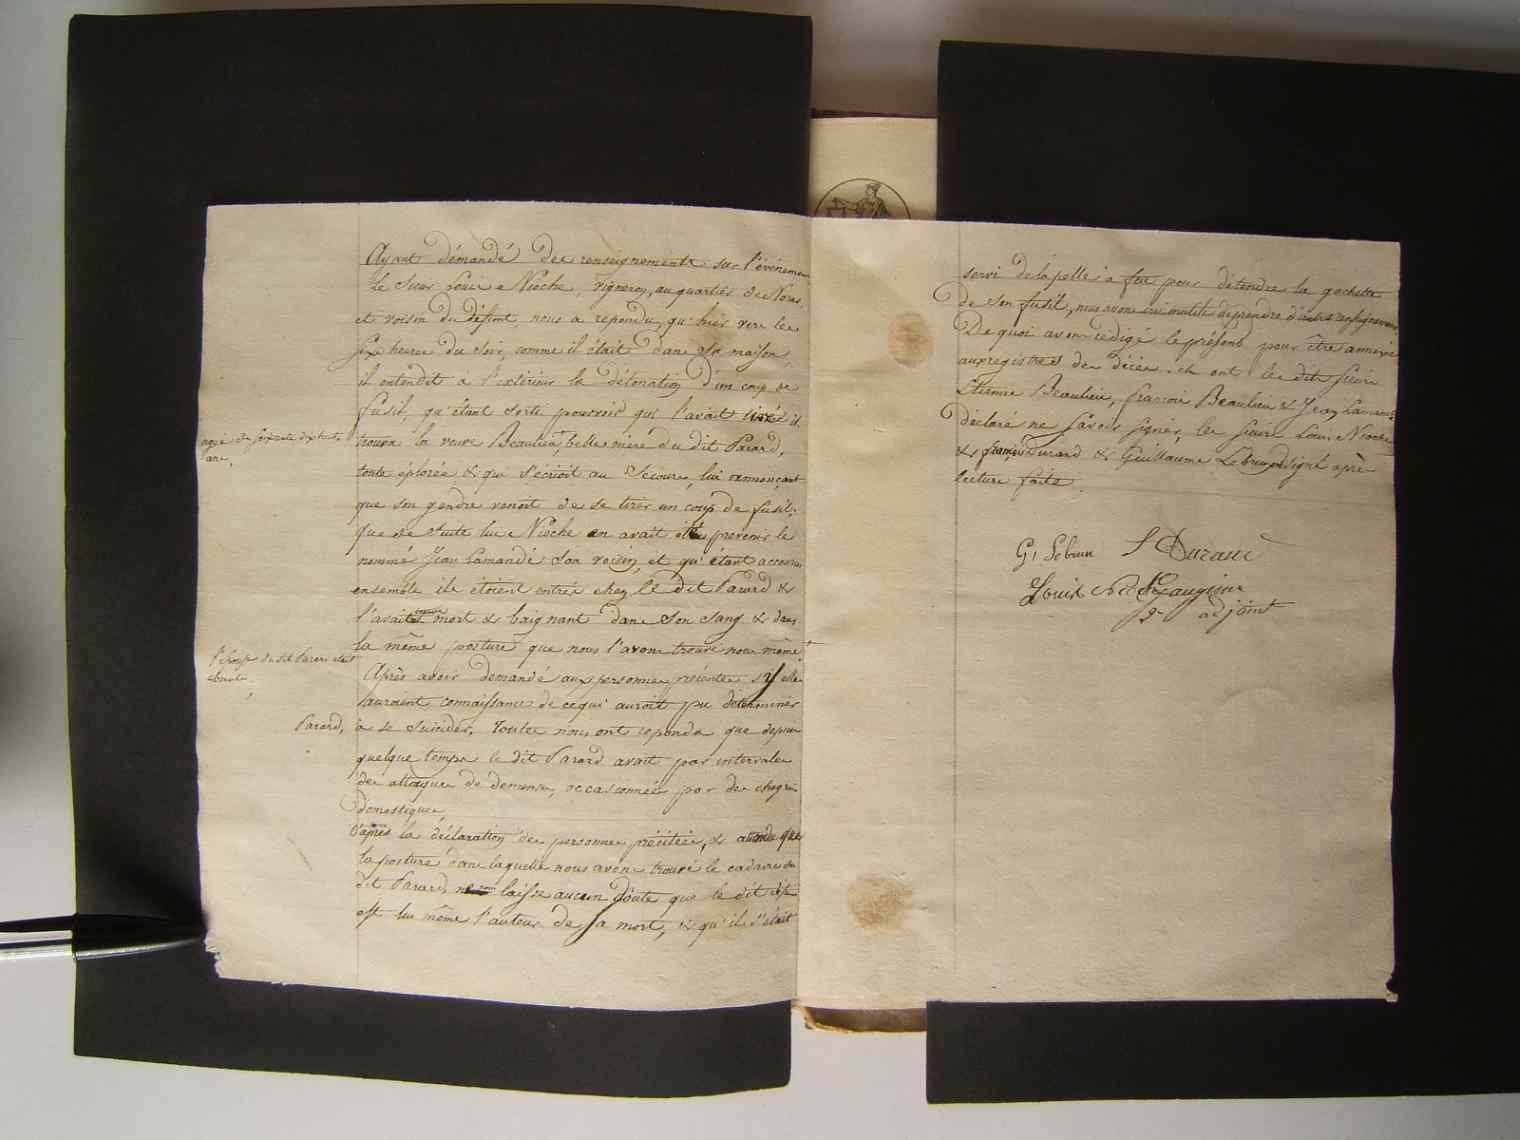 Ayant démandé des renseignements sur l'événement
le Sieur Louis Nioche, vigneron, au quartier de
et voisin du défunt nous a repondu, qu'hier vers les
six heures du soir, comme il était dans sa maison,
il entendit à l'extérieur la détonation d'un coup de
fusil, qu'étant sorti pour voir qui l'avait tiré il
agée de soixante dix huit
ans,
trouva la veuve Beaulieu, belle mère du dit Parard,
toute éplorée & qui s'écrioit au secours, lui annonçant
que son gendre venoit de se tirer un coup de fusil;
que de suite lui Nioche en avait été prevenir le
nommé Jean Lamandé son voisin, et qu'étant accourus
ensemble ils étoient entrés chez le dit Parard &
l'avait trouvé mort & baignant dans son sang & dans
la même posture que nous l'avons trouvé nous même.
l'épouse du dit Parard était
absente,
Après avoir demandé aux personnes présentes si elles
auroient connaissance de ce qui auroit pu déterminer
Parard,
à se suicider, toutes nous ont reponda que depuis
quelque temps le dit Parard avait par intervales
des attaques de demense, occasionnées par des chagrins
domestiques,
D'après la déclaration des personnes précitées, & attendu que
la posture dans laquelle nous avons trouvé le cadavre du
dit Parard, ne laisse aucun doute que le dit
est lui même l'auteur de sa mort, & qu'il s'était
servi de la pelle à feu pour détendre la gachette
de son fusil, nous avons cru inutile de prendre d'autres renseignemens
De quoi avons rédigé le présent pour être annexé
aux registres de décès. & ont les dits sieurs
Etienne Beaulieu, francois Beaulieu & Jean Lamandé
déclaré ne savoir signer, les sieurs Louis Nioche
& françois Durand & Guillaume Lebrun ont signé après
lecture faite.
G. Lebrun f Durand
Louis Gaugirie
adjoint